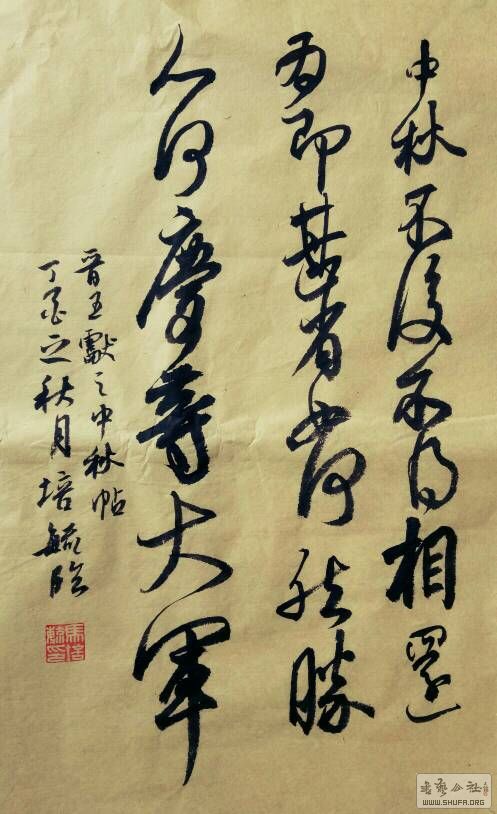 中秋不復不得相還
為即甚省如何然勝
人何慶等大軍
晉王獻之中秋帖
丁酉之秋月培毓臨
书艺公社
WWW.SHUFA.ORG